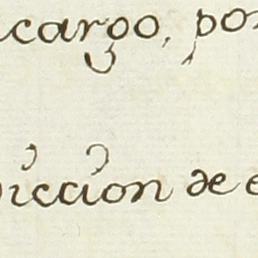 cargo, por
iccion de e